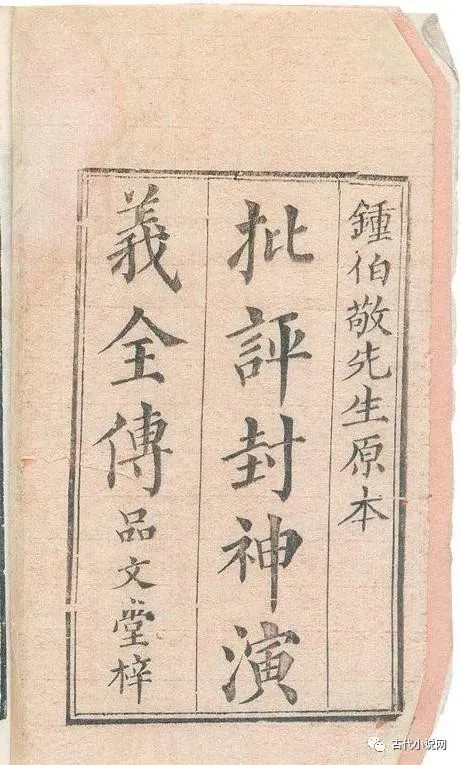 鍾伯敬先生原本
批評封神演
義全傳品文堂梓
古代小说网